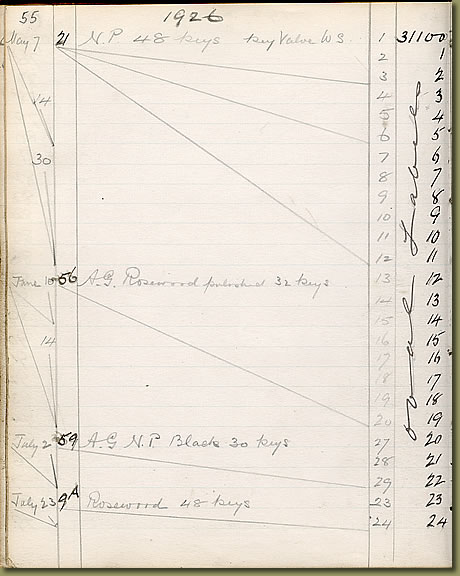 55 1926
May 7 21 N.P. 48 keys key Valve W.S. 1 31100
2 1
3 2
14 4 3
5 4
6 5
30 7 6
8 7
9 8
10 9
11 10
12 11
June 10 56 A.G. Rosewood polished 32 keys 13 12
14 13
15 14
14 16 15
17 16
18 17
19 18
20 19
July 2 59 A.G N.P. Black 30 keys 27 20
28 21
29 22
July 23 9A Rosewood 48 keys 23 23
24 24
oval Labels